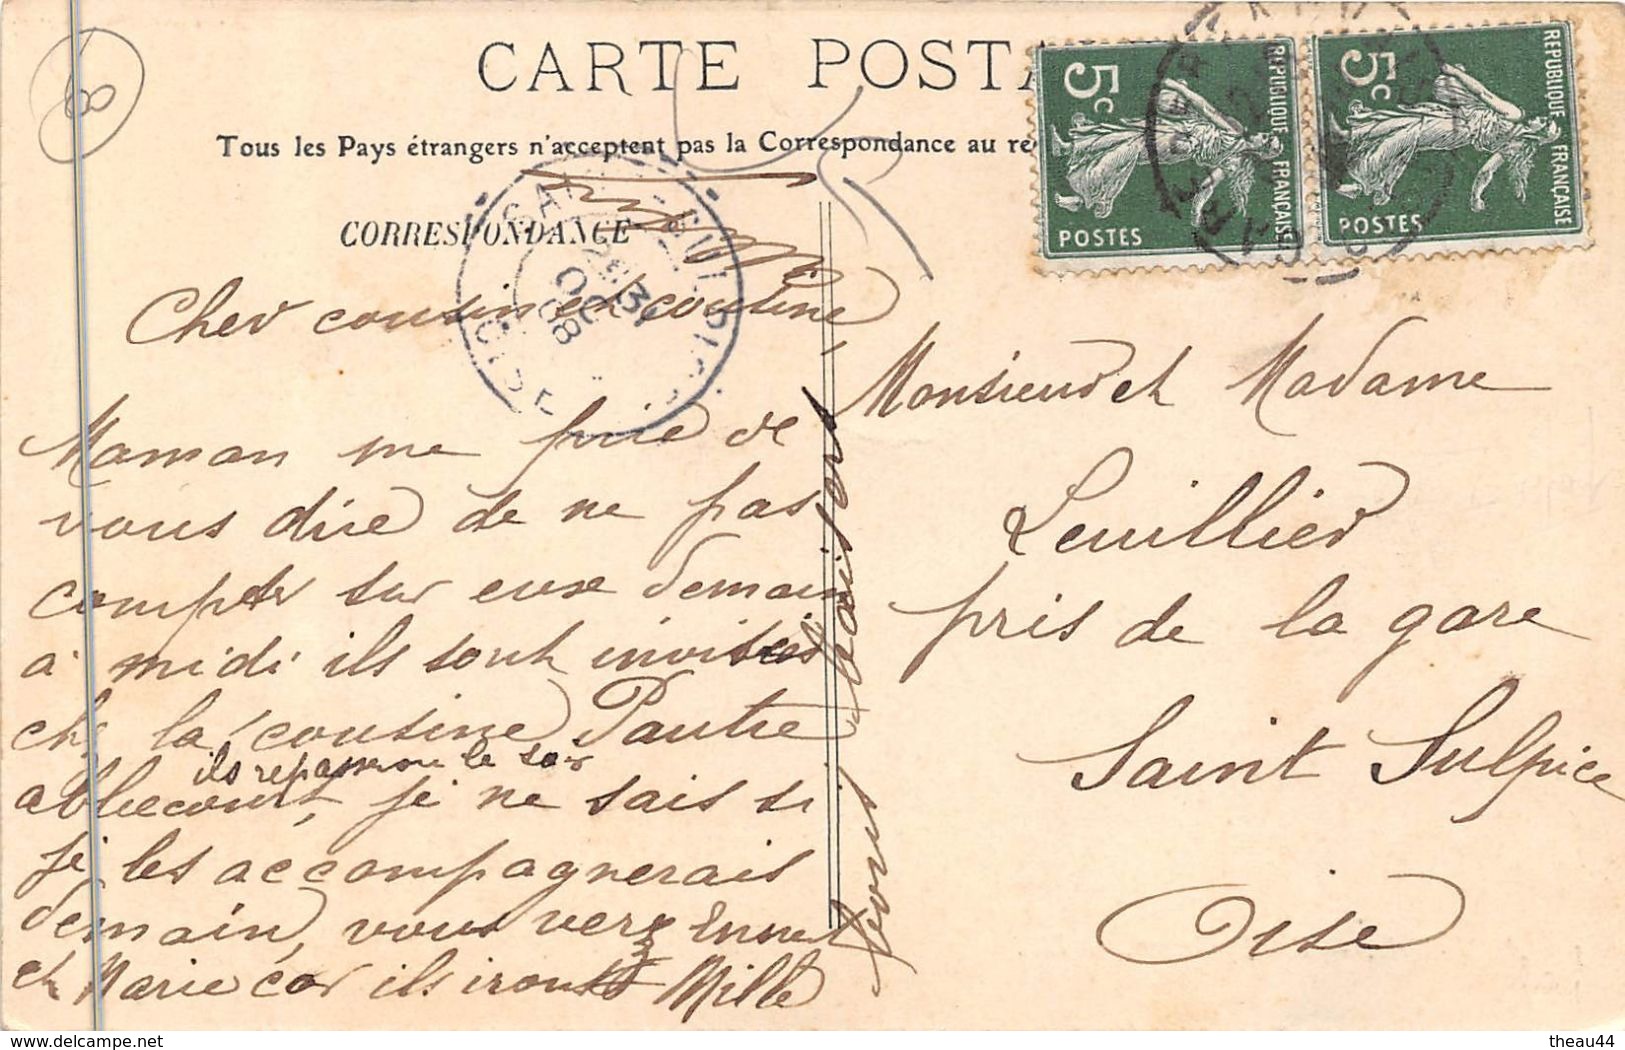 8
CARTE POSTA
Tous les Pays étrangers n'acceptent pas la Correspondance au re
CORRESPONDANCE
5c
REPUBLIQUE FRANÇAISE
POSTES
5c
REPUBLIQUE FRANÇAISE
POSTES
OISE
Cher cousin et cousine,
Maman me prie de
vous dire de ne pas
compter sur euse demain
à midi ils sont invités
chez la cousine Pautre
ils repasserons le soir
ablecourt, je ne sais si
je les accompagnerais
demain, vous verez
et Marie car ils iront
Mille
baisers
à vous
Monsieur et Madame
Leuillier
pris de la gare
Saint Sulpice
Oise
www.delcampe.net
theau44